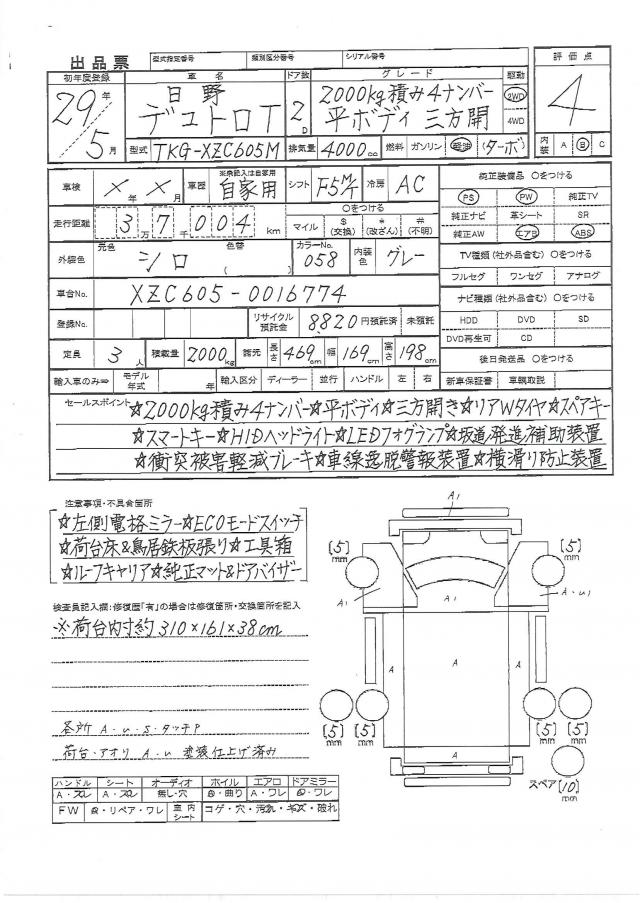 出品票 型式指定番号 類別区分番号 シリアル番号
初年度登録 車名 ドア数 グレード 駆動 評価点
29年 日野 2000kg積み4ナンバー 2WD
5月 デュトロT 2D 平ボディ 三方開 4WD 4
型式 TKG-XZC605M 排気量 4000cc 燃料 ガソリン 軽油 (ターボ) 内装 A B C
車検 ×年×月 車歴 ※未記入は自家用 自家用 シフト F5M/T 冷房 AC 純正装備品 〇をつける
PS PW 純正TV
走行距離 3万7千004km 〇をつける マイル $(交換) *(改ざん) #(不明) 純正ナビ 革シート SR
純正AW エアB ABS
外装色 元色 シロ 色替 ( ) カラーNo. 058 内装色 グレー TV種類(社外品含む) 〇をつける
フルセグ ワンセグ アナログ
車台No. XZC605-0016774 ナビ種類(社外品含む) 〇をつける
登録No. リサイクル預託金 8,820円預託済 未預託 HDD DVD SD
DVD再生可 CD
定員 3人 積載量 2000kg 諸元 長さ 469cm 幅 169cm 高さ 198cm 後日発送品 〇をつける
輸入車のみ⇒ モデル年式 年 輸入区分 ディーラー 並行 ハンドル 左 右 新車保証書 車輌取説
セールスポイント ☆2000kg積み4ナンバー☆平ボディ☆三方開き☆リアWタイヤ☆スペアキー
☆スマートキー☆HIDヘッドライト☆LEDフォグランプ☆坂道発進補助装置
☆衝突被害軽減ブレーキ☆車線逸脱警報装置☆横滑り防止装置
注意事項・不具合箇所
☆左側電格ミラー☆ECOモードスイッチ
☆荷台床&鳥居鉄板張り☆工具箱
☆ルーフキャリア☆純正マット&ドアバイザー
検査員記入欄:修復歴「有」の場合は修復箇所・交換箇所を記入
※荷台内寸約310×161×38cm
各所 A・U・S・タッチP
荷台・アオリ A・U 塗装仕上げ済み
A1
[5]mm [5]mm
A1 A1 A・U1
A A A
[5]mm [5]mm [5]mm [5]mm
A
スペア[10]mm
ハンドル シート オーディオ ホイル エアロ ドアミラー
A・スレ A・スレ 無し・穴 曲り A・ワレ ワレ
FW リペア・ワレ 室内シート コゲ・穴・汚れ・キズ・破れ